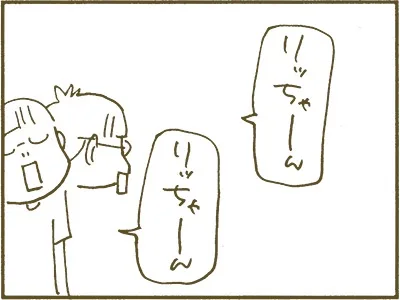 りッちゃーん
りッちゃーん